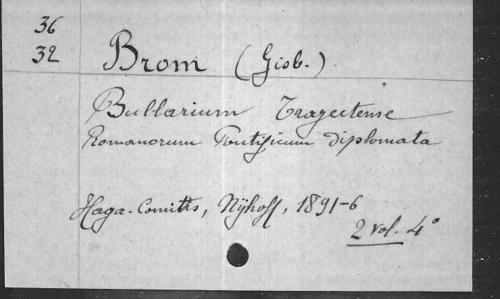 36
32
Brom (Gisb.)
Bullarium Trajectense
Romanorum Pontificum diplomata
Haga-Comitis, Nijhoff, 1891-6
2 vol. 4°